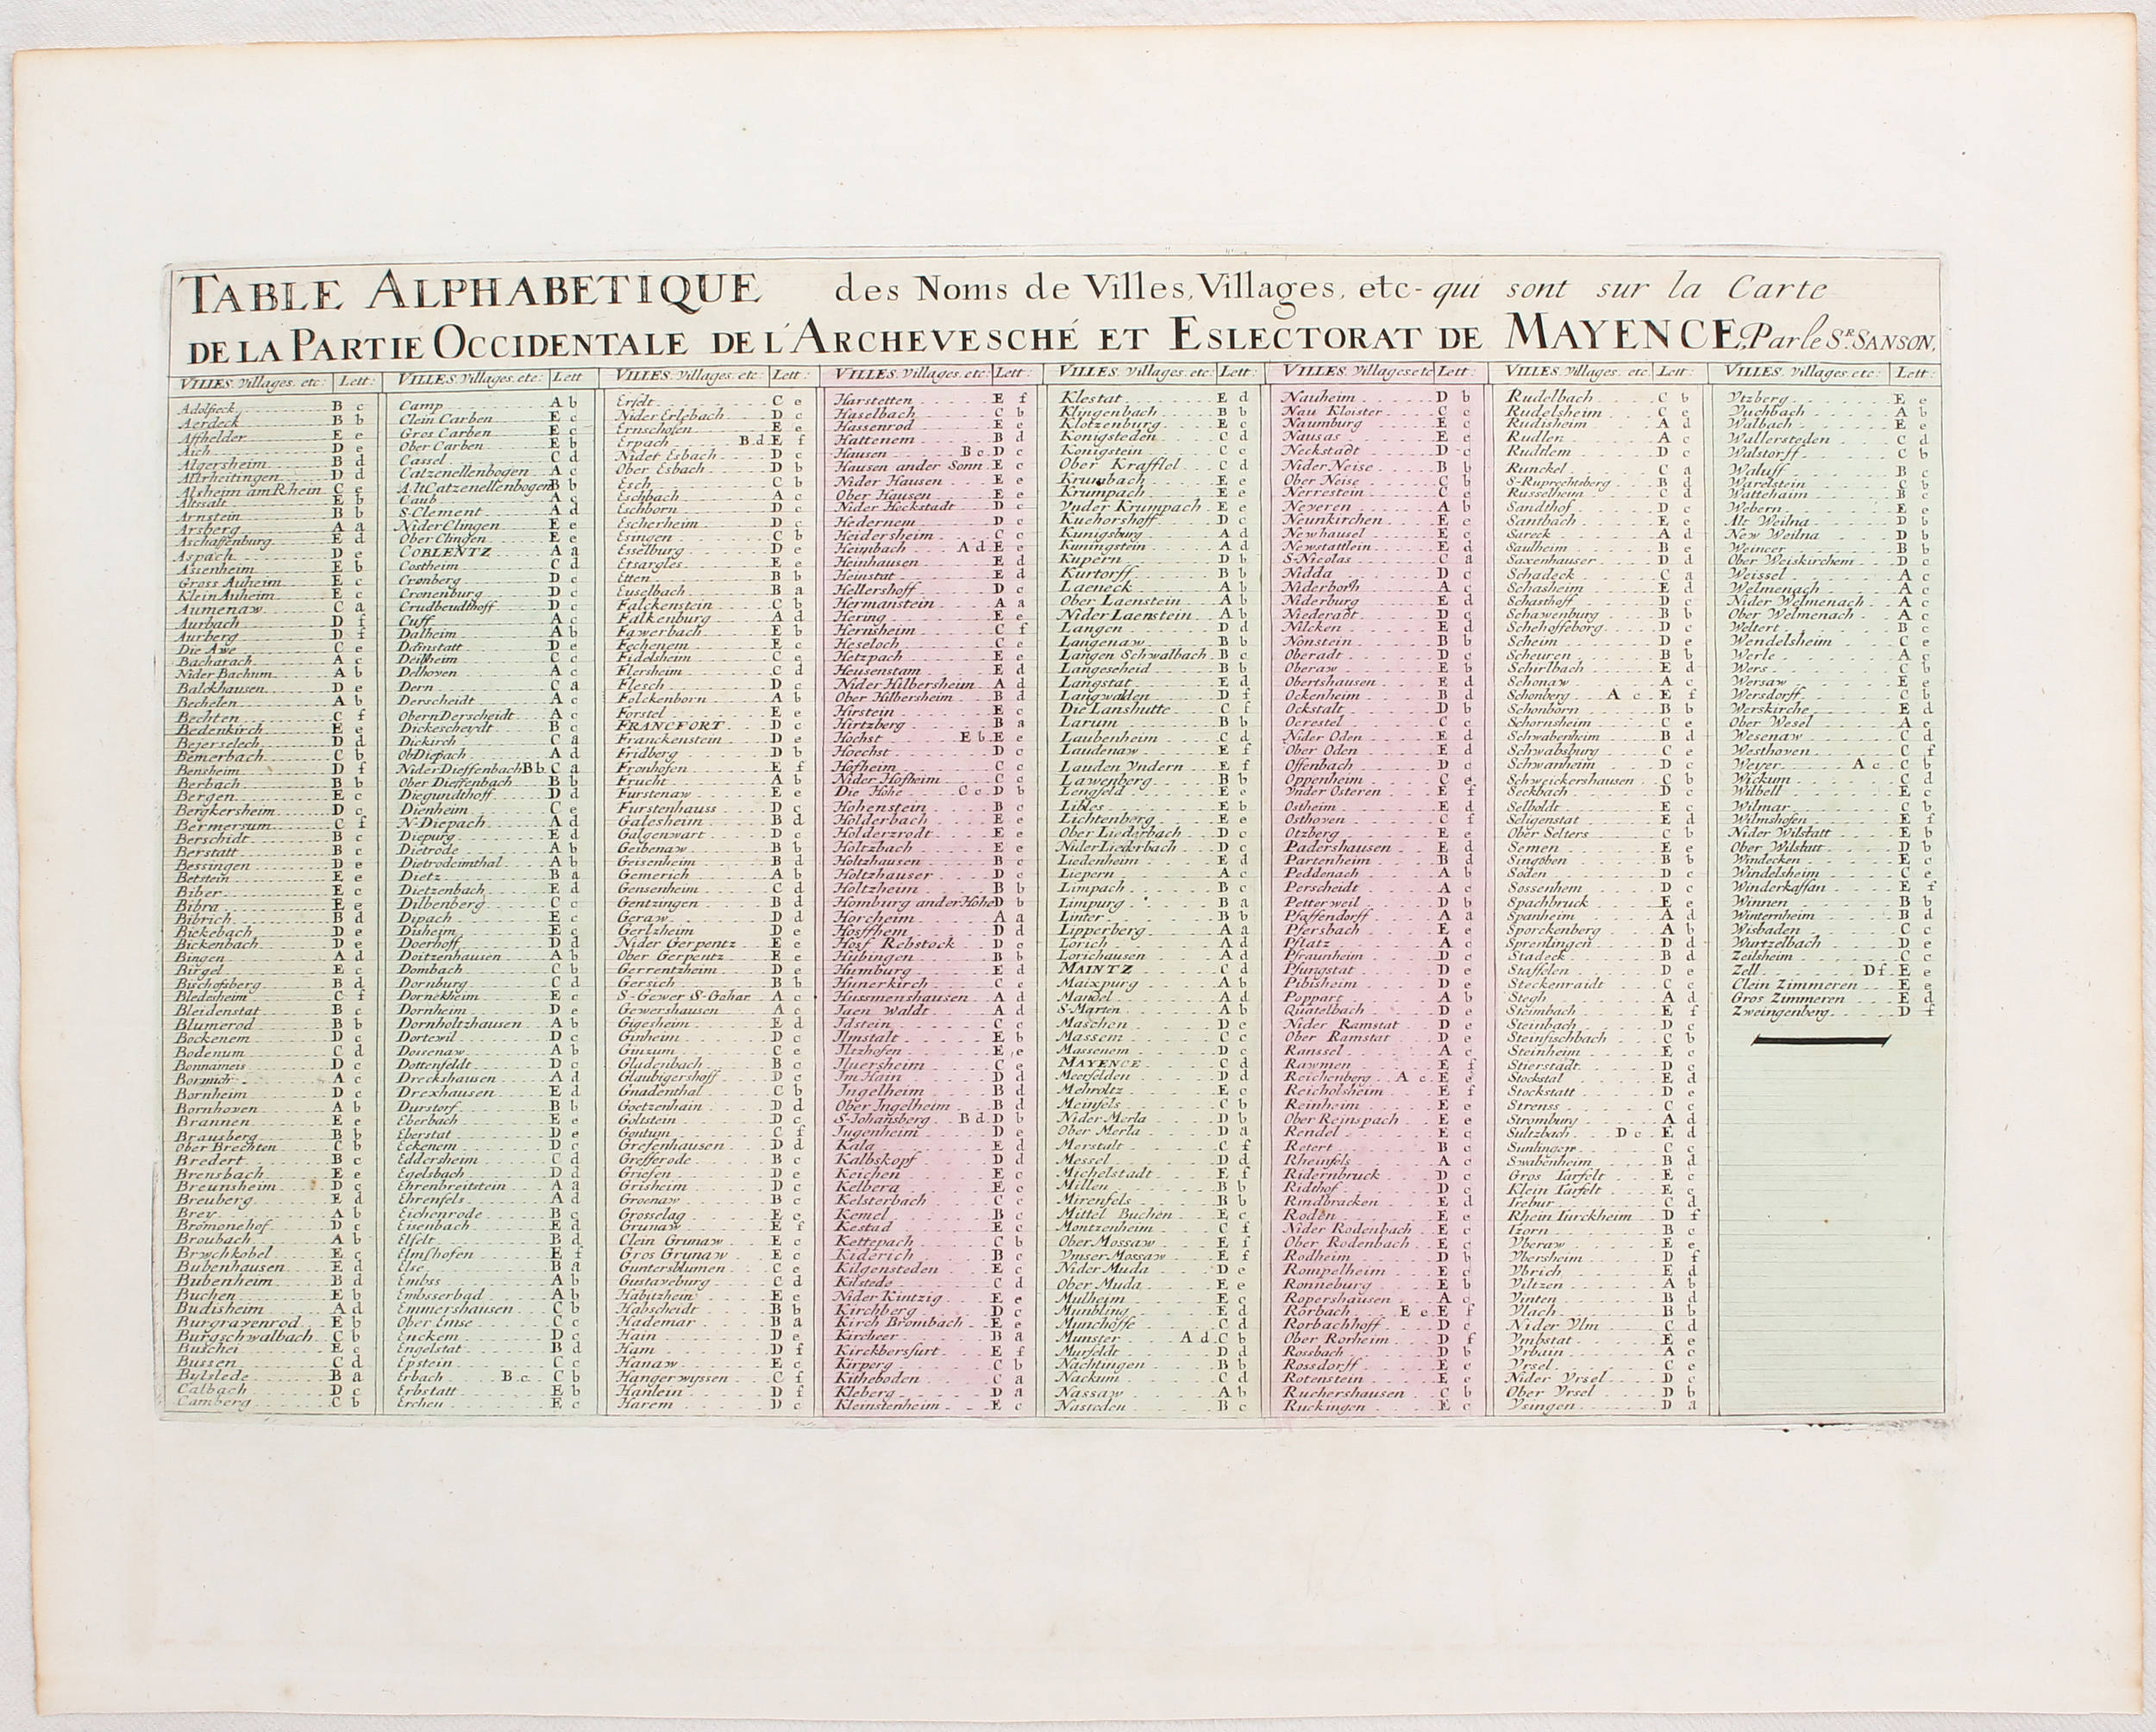 TABLE ALPHABETIQUE des Noms de Villes, Villages, etc- qui sont sur la Carte
DE LA PARTIE OCCIDENTALE DE L'ARCHEVESCHÉ ET ESLECTORAT DE MAYENCE, Par le Sr. SANSON,
VILLES. Villages. etc: Lett:
Adolfseck B c
Aerdeck B b
Affhelder E e
Aich D e
Algersheim B d
Altrheitingen D d
Alsheim am Rhein C e
Altssalt E b
Arnstein B b
Arsberg A a
Aschaffenburg E d
Aspach D e
Assenheim E b
Gross Auheim E c
Klein Auheim E c
Aumenaw C a
Aurbach D f
Aurberg D f
Die Awe C e
Bacharach A c
Nider Bachum A b
Balckhausen D e
Bechelen A b
Bechten C f
Bedenkirch E e
Bejerselech D d
Bemerbach C b
Bensheim D f
Berbach B b
Bergen E c
Bergkersheim D c
Bermersum C f
Berschidt B c
Berstatt B c
Bessingen D e
Betstein E e
Biber E c
Bibra E e
Bibrich B d
Bickebach D e
Bickenbach D e
Bingen A d
Birgel E c
Bischofsberg B d
Bledesheim C f
Bleidenstat B c
Blumerod B b
Bockenem D c
Bodenum C d
Bonnameis D c
Bormich A c
Bornheim D c
Bornhoven A b
Brannen E e
Brausberg B b
Ober Brechten C b
Bredert B c
Brensbach E e
Breunsheim D c
Breuberg E d
Brey A b
Bromonehof D c
Broubach A b
Brychkobel E c
Bubenhausen E d
Bubenheim B d
Buchen E b
Budisheim A d
Burgravenrod E b
Burgschwalbach C b
Buschei E c
Bussen C d
Bylslede B a
Calbach D c
Camberg C b
VILLES. Villages. etc: Lett
Camp A b
Clein Carben E c
Gros Carben E c
Ober Carben E b
Cassel C d
Catzenellenbogen A c
Alt Catzenellenbogen B b
Caub A c
S. Clement A d
Nider Clingen E e
Ober Clingen E e
COBLENTZ A a
Costheim C d
Cronberg D c
Cronenburg D c
Crudbeudthoff D c
Cuff A c
Dalheim A b
Damstatt D e
Deilsheim C c
Delhoven A c
Dern C a
Derscheidt A c
Obern Derscheidt A c
Dickescheydt B c
Dickirch C a
Ob Diepach A d
Nider Dieffenbach B b C a
Ober Dieffenbach B b
Diegundthoff D d
Dienheim C e
N-Diepach A d
Diepurg E d
Dietrode A b
Dietrodeimthal A b
Dietz B a
Dietzenbach E d
Dilbenberg C c
Dipach E c
Disheim E c
Doerhoff D d
Doitzenhausen A b
Dombach C b
Dornburg C d
Dornekheim E c
Dornheim D e
Dornholtzhausen A b
Dortewil D c
Dousenaw A b
Dottenfeldt D c
Dreckshausen A d
Drexhausen E d
Durstorf B b
Eberbach E e
Eberstat D e
Eckenem D c
Eddersheim C d
Egelsbach D d
Ehrenbreitstein A a
Ehrenfels A d
Eichenrode B c
Eisenbach E d
Elfelt B d
Elmshofen E f
Else B a
Embss A b
Embsserbad A b
Emmershausen C b
Ober Emse C c
Enckem D c
Engelstat B d
Epstein C c
Erbach B c. C b
Erbstatt E b
Ercheu E c
VILLES. Villages. etc: Lett:
Erfelt C e
Nider Erlebach D c
Ernschofen E e
Erpach B.d E f
Nidet Esbach D c
Ober Esbach D b
Esch C b
Eschbach A c
Eschborn D c
Escherheim D c
Esingen C b
Esselburg D e
Etsargles E e
Etten B b
Euselbach B a
Falckenstein C b
Falkenburg A d
Fawerbach E b
Fechenem E c
Fidelsheim C e
Flersheim C d
Flesch D c
Folckenborn A b
Forstel E e
FRANCFORT D c
Franckenstein D e
Fridberg D b
Fronhofen E f
Frucht A b
Furstenaw E e
Furstenhauss D c
Galesheim B d
Galgenwart D c
Geibenaw B b
Geisenheim B d
Gemerich A b
Gensenheim C d
Gentzingen B d
Geraw D d
Gerlzheim D e
Nider Gerpentz E e
Ober Gerpentz E e
Gerrentzheim D e
Gersich B b
S-Gewer S-Gohar A c
Gewershausen A c
Gigesheim E d
Ginheim D c
Ginzum C e
Gladenbach B c
Glaubigershoff D c
Gnadenthal C b
Goetzenhain D d
Goltstein D c
Goutum C f
Grefenhausen D d
Grefferode B c
Griefen D e
Grisheim D c
Groenaw B c
Grosselag E c
Grunaw E f
Clein Grunaw E c
Gros Grunaw E c
Guntersblumen C e
Gustaveburg C d
Habitzheim E e
Habscheidt B b
Hademar B a
Hain D e
Ham D f
Hanaw E c
Hangerwyssen C f
Hanlein D f
Harem D c
VILLES. Villages. etc: Lett:
Harstetten E f
Haselbach C b
Hassenrod E e
Hattenem B d
Hausen B c D c
Hausen ander Sonn E c
Nider Hausen E e
Ober Hausen E e
Nider Hockstadt D c
Hedernem D c
Heidersheim C c
Heimbach A d E e
Heinhausen E d
Heinstat E d
Hellershoff D c
Hermanstein A a
Hering E e
Hernsheim C f
Heseloch C e
Hetzpach E e
Heusenstam E d
Nider Hilbersheim A d
Ober Hilbersheim B d
Hirstein E c
Hirtzberg B a
Hochst E b E e
Hoechst D c
Hofheim C c
Nider Hofheim C c
Die Hohe C c. D b
Hohenstein B c
Holderbach E e
Holderzrodt E e
Holtzbach E e
Holtzhausen B c
Holtzhauser D c
Holtzheim B b
Homburg ander Hohe D b
Horcheim A a
Hosffhem D d
Hosf Rebstock D c
Hubingen B b
Humburg E d
Hunerkirch C e
Hussmenshausen A d
Jaen Waldt A d
Idstein C c
Ilmstalt E b
Iltzhofen E e
Iluersheim C e
Im Hain D d
Ingelheim B d
Ober Ingelheim B d
S-Johansberg B d. D b
Jugenheim D e
Kala E d
Kalbskopf D d
Keichen E c
Kelbera E c
Kelsterbach C c
Kemel B c
Kestad E c
Kettepach C b
Kiderich B c
Kilgensteden E c
Kilstede C d
Nider Kintzig E e
Kirchberg D c
Kirch Brombach E e
Kircheer B a
Kirckbersfurt E f
Kirperg C b
Kitheboden C a
Kleberg D a
Kleinstenheim E c
VILLES. Villages. etc: Lett:
Klestat E d
Klingenbach B b
Klotzenburg E c
Konigsteden C d
Konigstein C c
Ober Krafflel C d
Krumbach E e
Krumpach E e
Vnder Krumpach E e
Kuehorshoff D c
Kunigsburg A d
Kuningstein A d
Kupern D b
Kurtorff B b
Laeneck A b
Ober Laenstein A b
Nider Laenstein A b
Langen D d
Langenaw B b
Langen Schwalbach B c
Langescheid B b
Langstat E d
Langwalden D f
Die Lanshutte C f
Larum B b
Laubenheim C d
Laudenaw E f
Lauden Vndern E f
Lawenberg B b
Lengfeld E e
Libles E b
Lichtenberg E e
Ober Liederbach D c
Nider Liederbach D c
Liedenheim E d
Liepern A c
Limpach B c
Limpurg B a
Linter B b
Lipperberg A a
Lorich A d
Lorichausen A d
MAINTZ C d
Maixpurg A b
Mandel A d
S-Marten A b
Maschen D e
Massem C c
Massenem D c
MAYENCE C d
Meerfelden D d
Mehroltz E c
Meinfels C b
Nider Merla D b
Ober Merla D a
Merstalt C f
Messel D d
Michelstadt E f
Millen B b
Mirenfels B b
Mittel Buchen E c
Montzenheim C f
Ober Mossaw E f
Vmser Mossaw E f
Nider Muda D e
Ober Muda E e
Mulheim E c
Munbling E d
Munchoffe C d
Munster A d. C b
Murfeldt D d
Nachtingen B b
Nackum C d
Nassaw A b
Nasteden B c
VILLES. Villages etc Lett:
Nauheim D b
Nau Kloister C c
Naumburg E c
Nausas E e
Neckstadt D c
Nider Neise B b
Ober Neise C b
Nerrestein C e
Neveren A b
Neunkirchen E e
Newhausel E c
Newstattlein E d
S-Nicolas C a
Nidda D c
Niderborh A c
Niderburg E d
Niederadt D c
Nilcken E d
Nonstein B b
Oberadt D c
Oberaw E b
Obertshausen E d
Ockenheim B d
Ockstalt D b
Ocrestel C c
Nider Oden E d
Ober Oden E d
Offenbach D c
Oppenheim C e
Vnder Osteren E f
Ostheim E d
Osthoven C f
Otzberg E e
Padershausen E d
Partenheim B d
Peddenach A b
Perscheidt A c
Petterweil D b
Pfaffendorff A a
Pfersbach E e
Pflatz A c
Pfraunheim D c
Pfungstat D e
Pibisheim D e
Poppart A b
Quatelbach D e
Nider Ramstat D e
Ober Ramstat D e
Ranssel A c
Rawmen E f
Reichenberg A c. E e
Reicholsheim E f
Reinheim E e
Ober Reinspach E e
Rendel E c
Retert B c
Rheinfels A c
Ridernbruck D c
Ridthof D c
Rindbrucken E d
Roden E e
Nider Rodenbach E c
Ober Rodenbach E c
Rodheim D b
Rompelheim E c
Ronneburg E b
Ropershausen A c
Rorbach E e. E f
Rorbachhoff D c
Ober Rorheim D f
Rossbach D b
Rossdorff E c
Rotenstein E c
Ruchershausen C b
Ruckingen E c
VILLES. Villages. etc. Lett:
Rudelbach C b
Rudelsheim C e
Rudisheim A d
Rudlen A c
Rudtlem D c
Runckel C a
S-Ruprechtsberg B d
Russelheim C d
Sandthof D c
Santbach E e
Sareck A d
Saulheim B e
Saxenhauser D d
Schadeck C a
Schasheim E d
Schasthoff D c
Schawenburg B b
Schehoffeborg D c
Scheim D e
Scheuren B b
Schirlbach E d
Schonaw A c
Schonberg A c. E f
Schonborn B b
Schornsheim C e
Schwabenheim B d
Schwabsburg C e
Schwanheim D c
Schweickershausen C b
Seckbach D c
Selboldt E c
Seligenstat E d
Ober Selters C b
Semen E e
Singoben B b
Soden D c
Sossenhem D c
Spachbruck E e
Spanheim A d
Sporckenberg A b
Sprenlingen D d
Stadeck B d
Staffelen D e
Steckenraidt C c
Stegh A d
Steimbach E f
Steinbach D c
Steinfischbach C b
Steinheim E c
Stierstadt D c
Stockstal E d
Stockstatt D e
Strenss C c
Stromburg A d
Sultzbach D c. E d
Sunlingen C c
Swabenheim B d
Gros Tarfelt E c
Klein Tarfelt E c
Trebur C d
Rhein Turckheim D f
Tzorn B c
Vberaw E e
Vbersheim D f
Vbrich E d
Viltzen A b
Vinten B d
Vlach B b
Nider Vlm C d
Vmbstat E e
Vrbain A c
Vrsel C e
Nider Vrsel D c
Ober Vrsel D b
Vsingen D a
VILLES. Villages etc: Lett:
Vtzberg E e
Vuchbach A b
Walbach E e
Wallersteden C d
Walstorff C b
Waluff B c
Warelstein C b
Wattehaim B c
Webern E e
Alt Weilna D b
New Weilna D b
Weincer B b
Ober Weiskirchem D c
Weissel A c
Welmenach A c
Nider Welmenach A c
Ober Welmenach A c
Weltert B c
Wendelsheim C e
Werle A c
Wers C b
Wersaw E e
Wersdorff C b
Werskirche E d
Ober Wesel A c
Wesenaw C d
Westhoven C f
Weyer A c. C b
Wickum C d
Wilbell E c
Wilmar C b
Wilmshofen E f
Nider Wilstatt E b
Ober Wilstatt D b
Windecken E c
Windelsheim C e
Winderkaffan E f
Winnen B b
Winternheim B d
Wisbaden C c
Wurtzelbach D e
Zeilsheim C c
Zell D f. E e
Clein Zimmeren E e
Gros Zimmeren E d
Zweingenberg D f